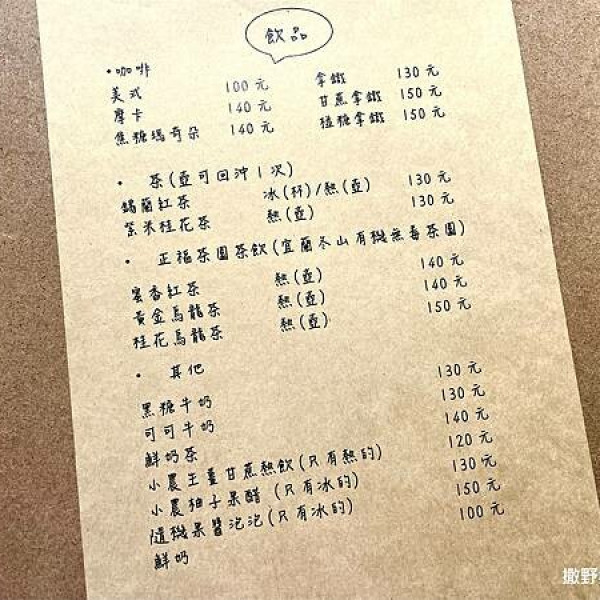 飲品
•咖啡
美式 100元 拿鐵 130元
摩卡 140元 甘蔗拿鐵 150元
焦糖瑪奇朵 140元 椪糖拿鐵 150元
• 茶(壺可回沖1次)
錫蘭紅茶 冰(杯)/熱(壺) 130元
紫米桂花茶 熱(壺) 130元
• 正福茶園茶飲(宜蘭冬山有機無毒茶園)
蜜香紅茶 熱(壺) 140元
黃金烏龍茶 熱(壺) 140元
桂花烏龍茶 熱(壺) 150元
• 其他
黑糖牛奶 130元
可可牛奶 130元
鮮奶茶 140元
小農生薑甘蔗熱飲(只有熱的) 120元
小農柚子果醋 (只有冰的) 130元
隨機果醬泡泡(只有冰的) 150元
鮮奶 100元
撒野